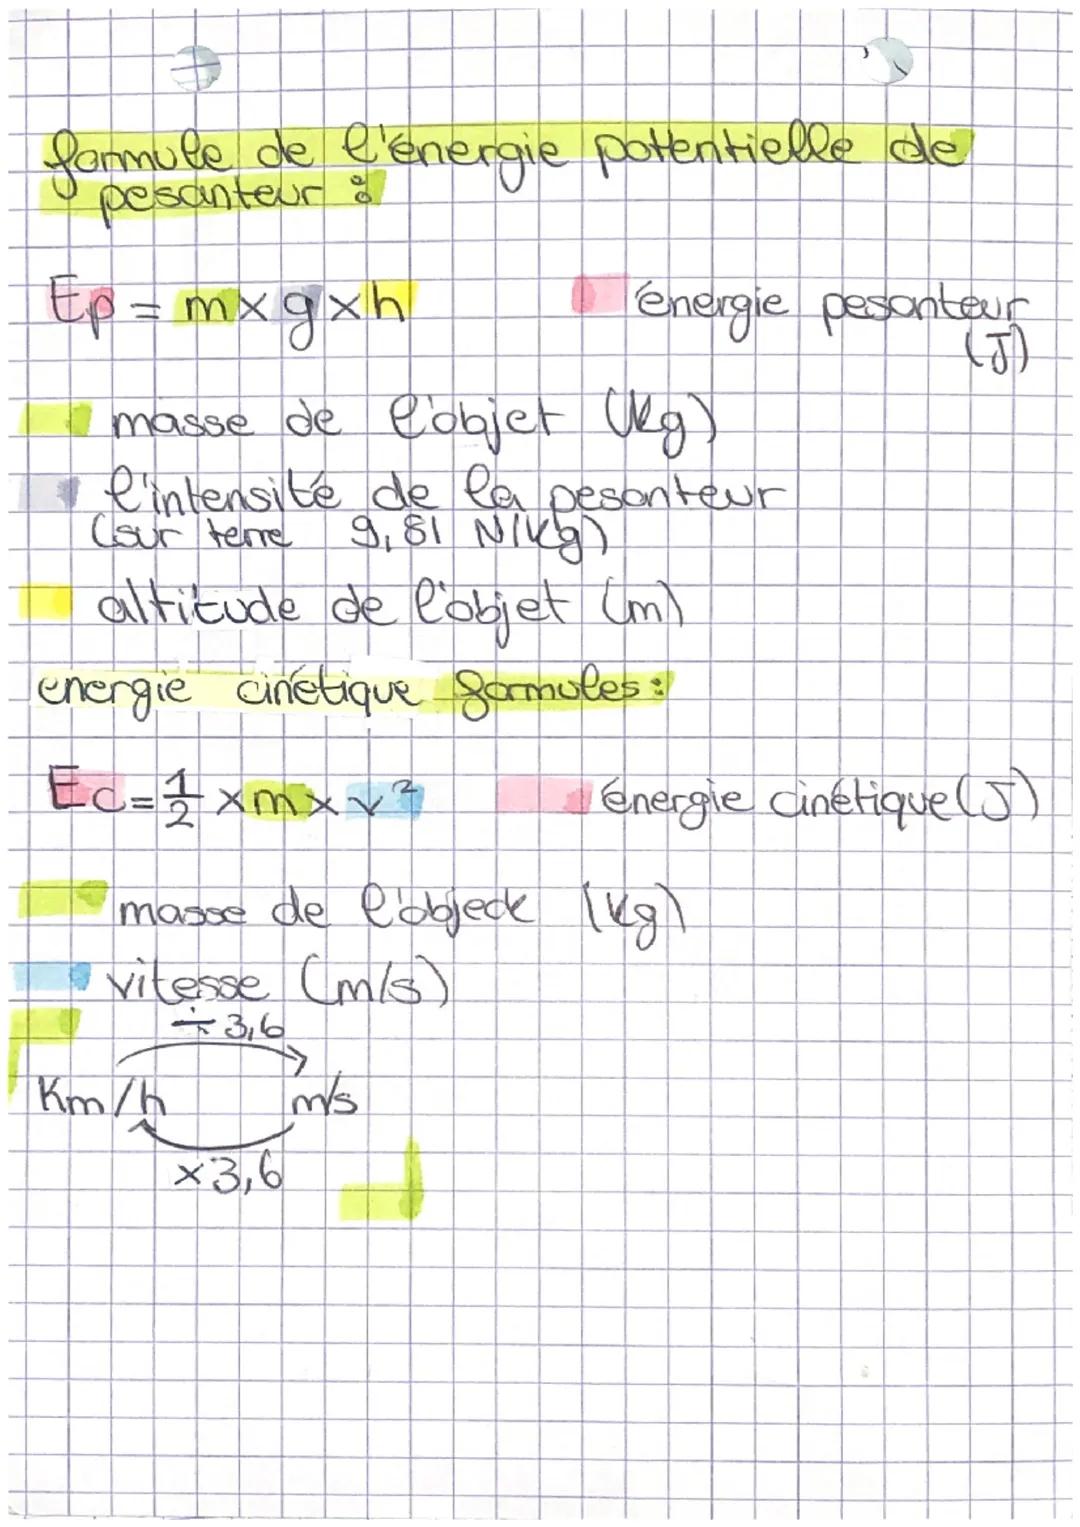 formule de l'énergie potentielle de
pesanteur :
Ep = m x g x h
énergie pesanteur
(J)
masse de l'objet (kg)
l'intensité de la pesanteur
(sur terre 9,81 N/kg)
altitude de l'objet (m)
energie cinétique formules :
Ec = 1/2 x m x v²
énergie cinétique (J)
masse de l'objeck (kg)
vitesse (m/s)
÷ 3,6
Km/h m/s
x 3,6